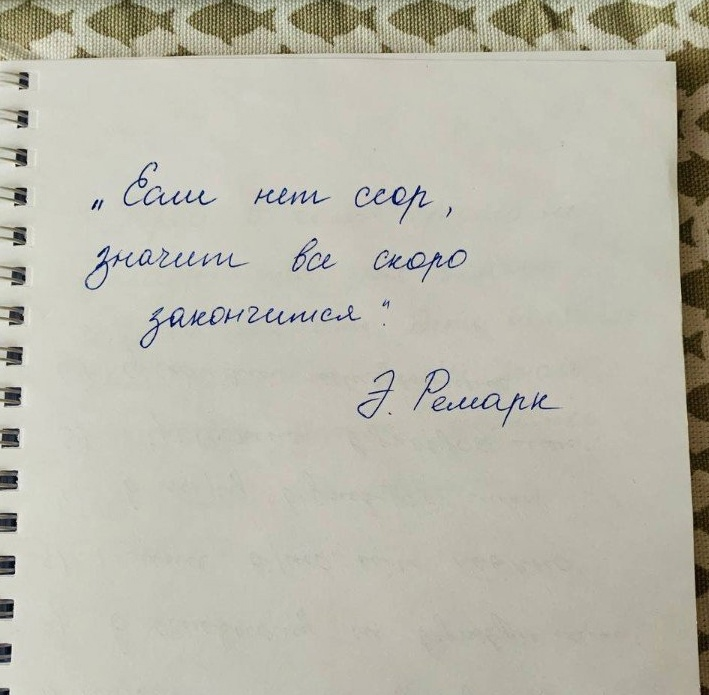 „Если нет ссор,
значит все скоро
закончится“.
Э. Ремарк